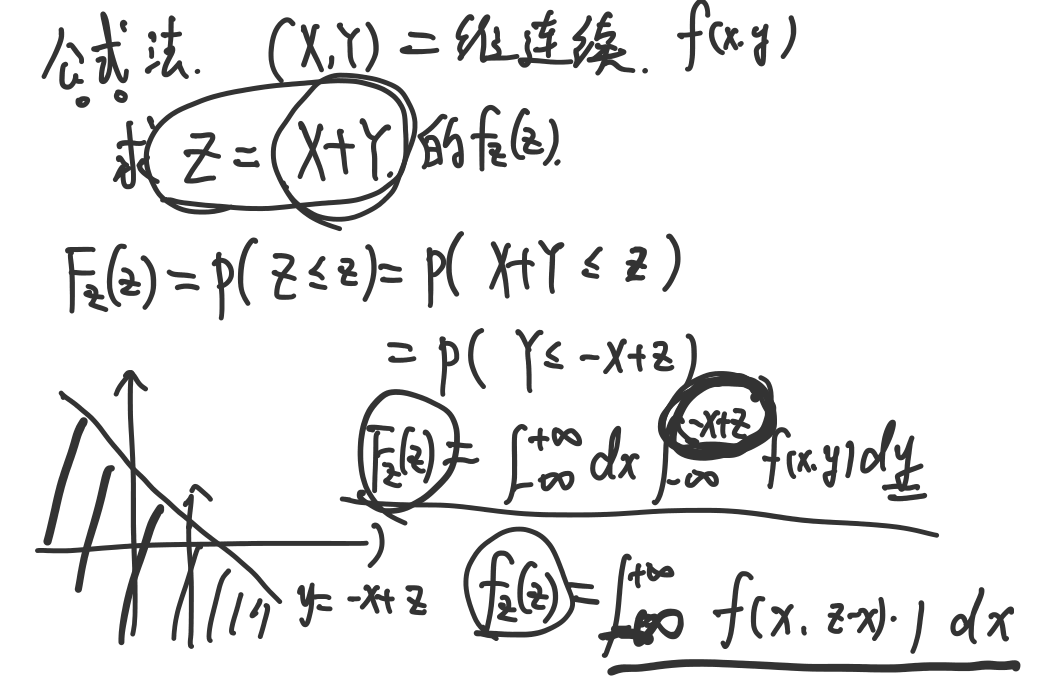 公式法. (X,Y) 二维连续. f(x.y)
求 Z = X+Y. 的 f_Z(z).
F_Z(z) = P( Z ≤ z) = P( X+Y ≤ z )
= P( Y ≤ -X+z )
F_Z(z) = ∫_{-∞}^{+∞} dx ∫_{-∞}^{-x+z} f(x.y) dy
y = -x+z
f_Z(z) = ∫_{-∞}^{+∞} f(x, z-x)·1 dx